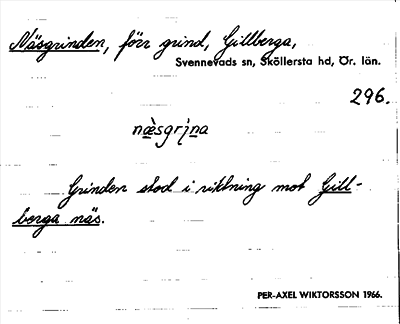 Näsgrinden, förr grind, Gillberga,
Svennevads sn, Sköllersta hd, Ör. län.
296.
næ̀sgrįna
Grinden stod i riktning mot Gill-
berga näs.
PER-AXEL WIKTORSSON 1966.